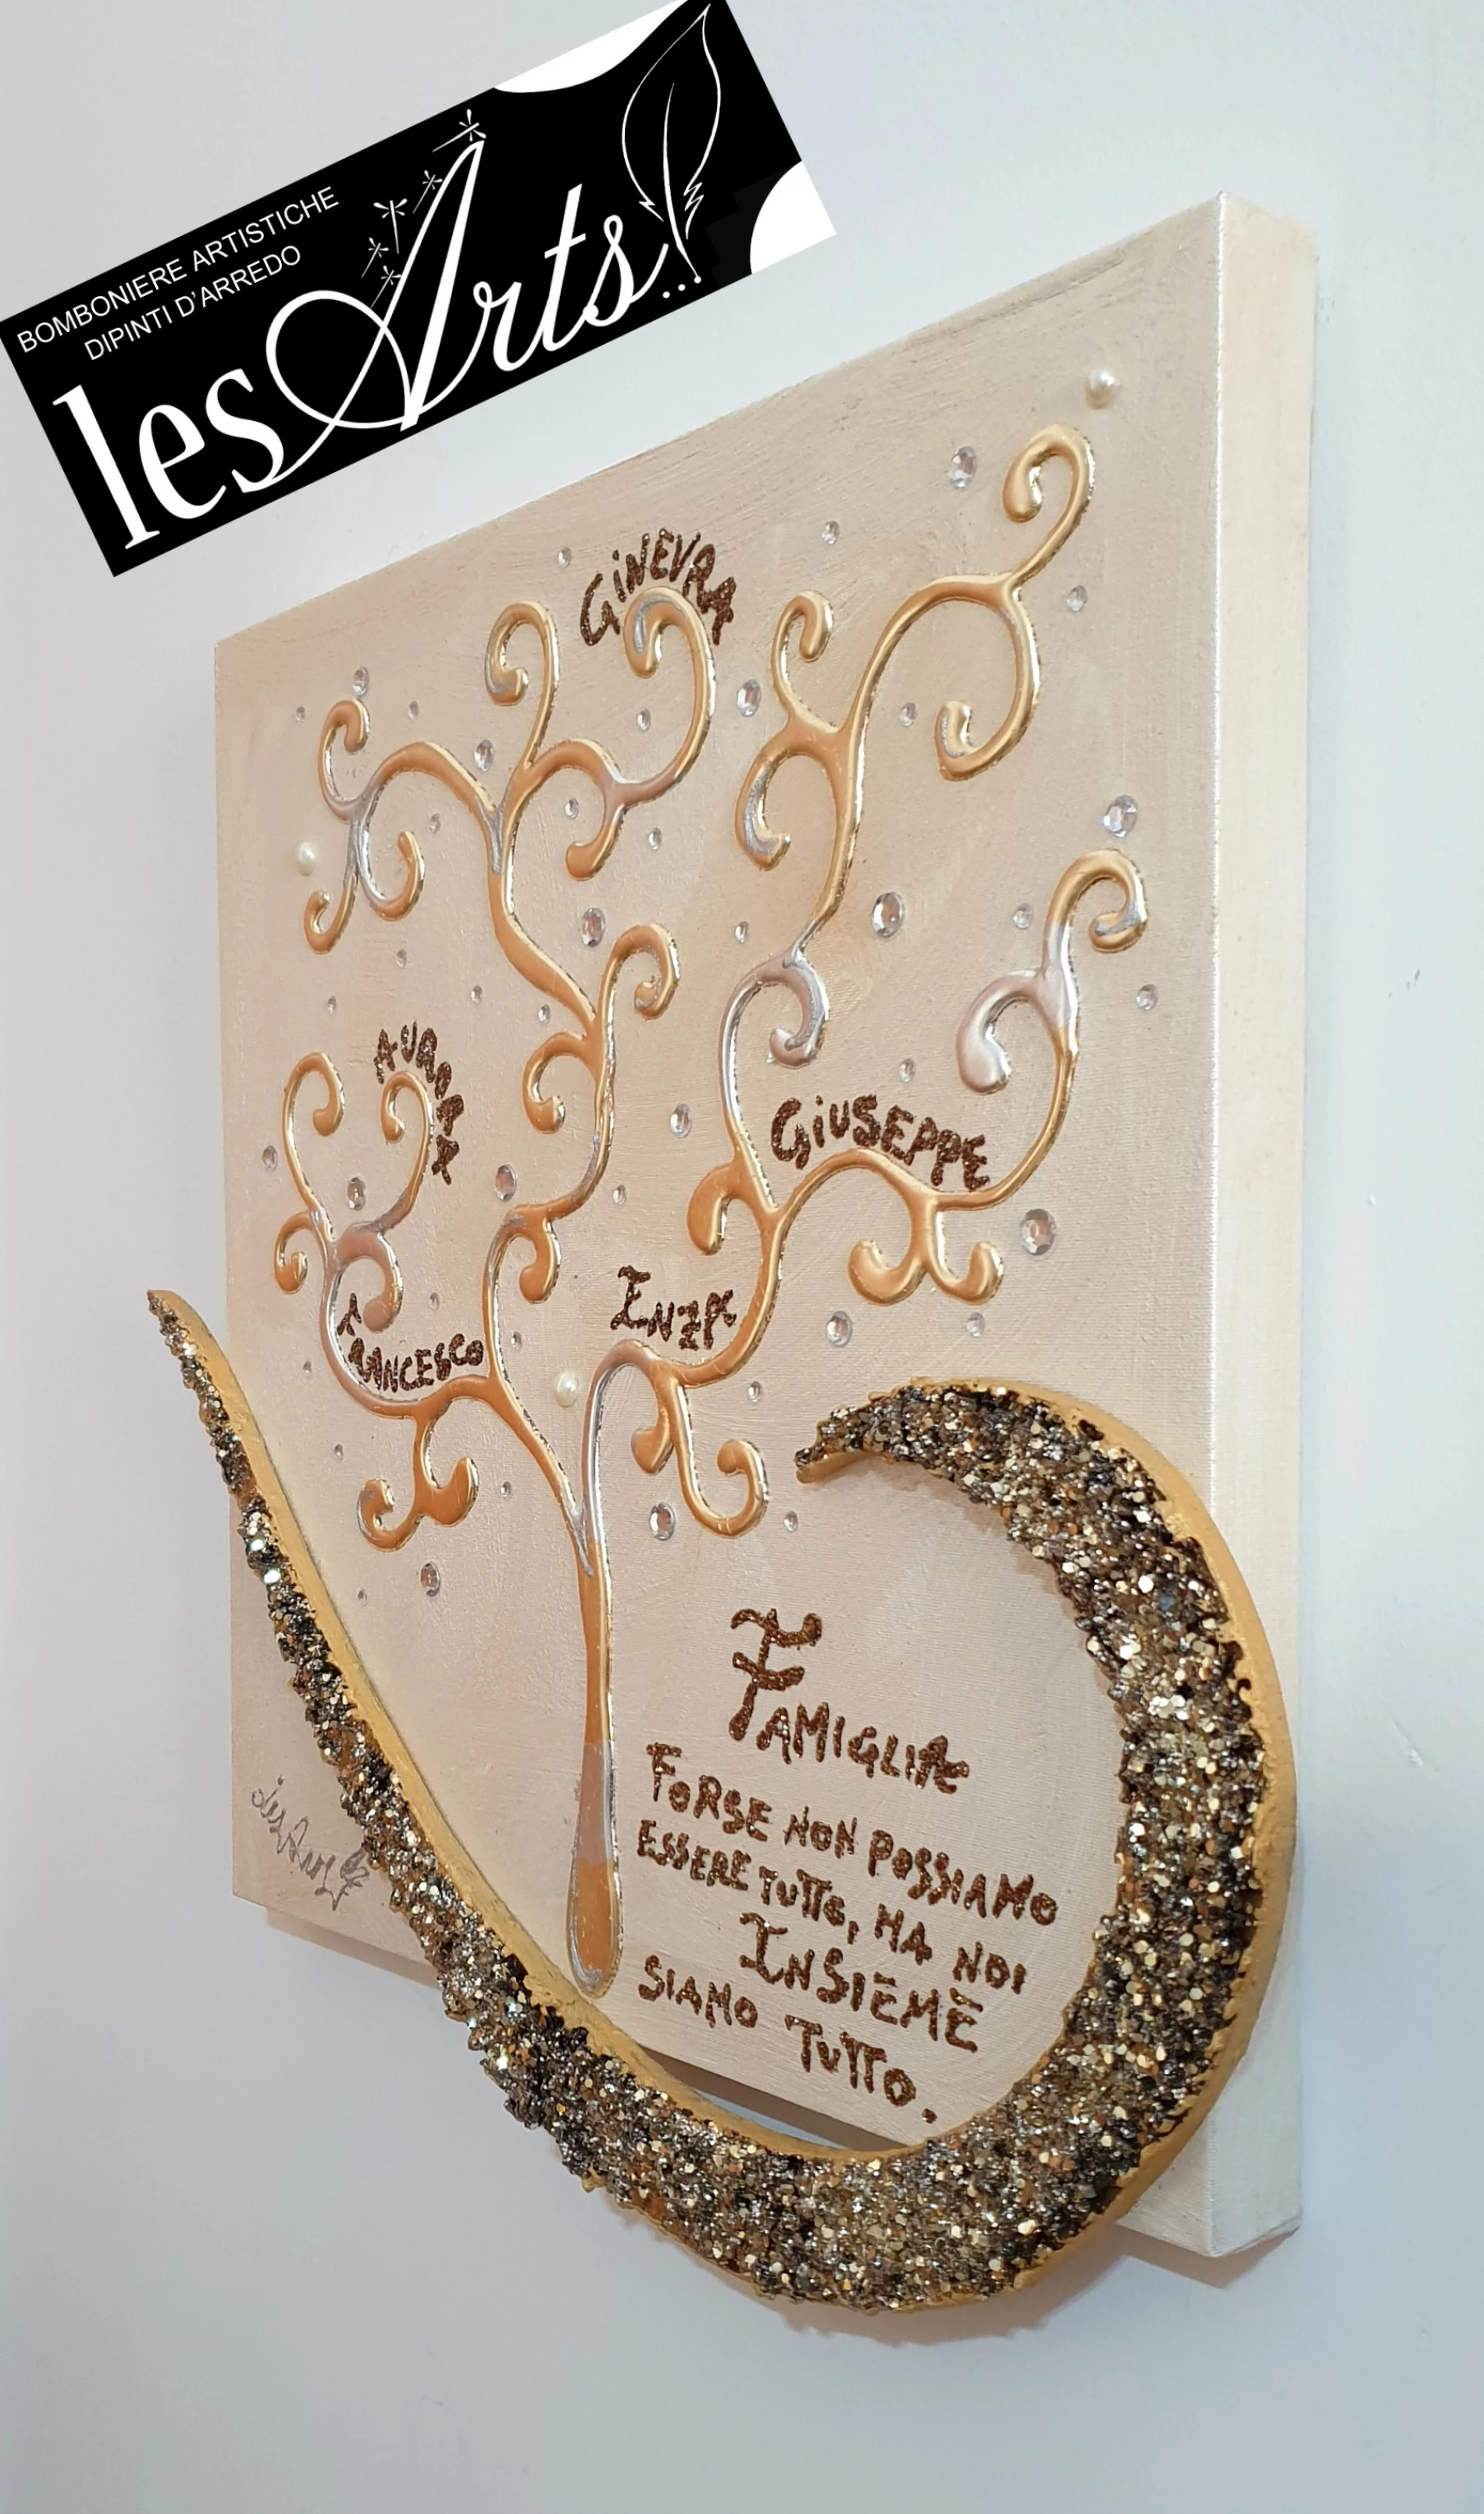 BOMBONIERE ARTISTICHE
DIPINTI D'ARREDO
les Arts...
GiNEVRA
AURORA
GiUSEPPE
FRANCESCO
FAMIGLIA
FORSE NON POSSIAMO
ESSERE TUTTO, MA NOI
INSIEME
SIAMO TUTTO.